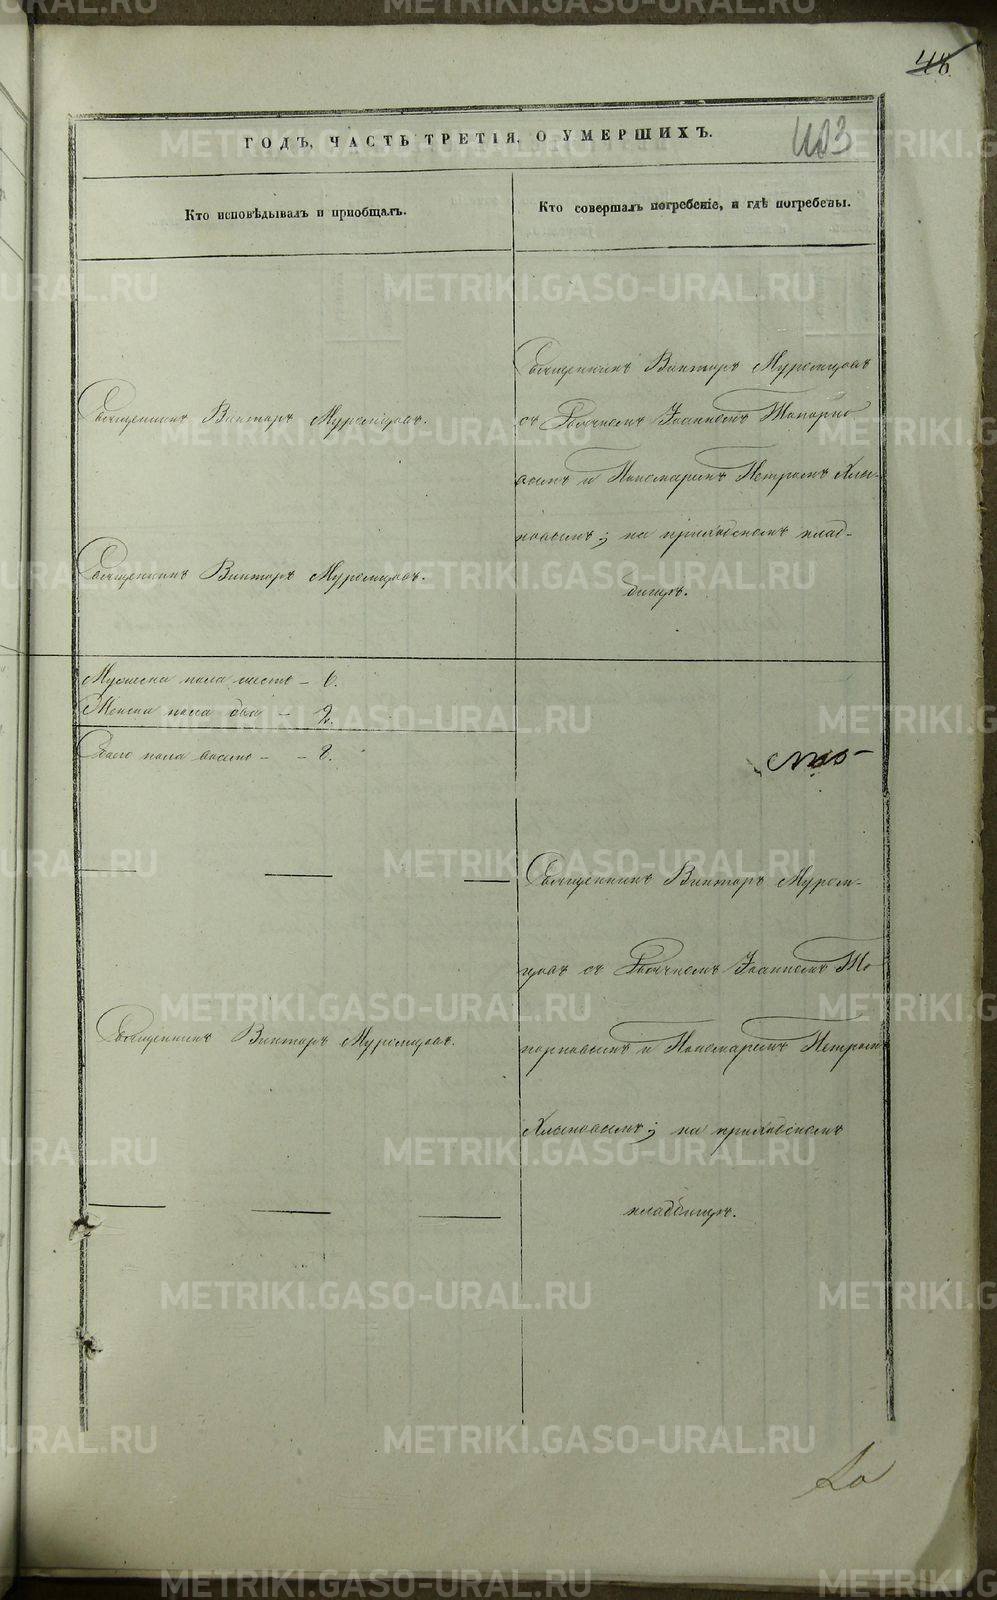 48.
403
ГОДЪ, ЧАСТЬ ТРЕТІЯ, О УМЕРШИХЪ.
Кто исповѣдывалъ и пріобщалъ.
Кто совершалъ погребеніе, и гдѣ погребены.
Священникъ Викторъ Муромцовъ.
Священникъ Викторъ Муромцовъ.
Священникъ Викторъ Муромцовъ
съ Іоанномъ Топорко
вымъ и Пономаремъ Петромъ Хлы-
новымъ; на приходскомъ клад-
бищѣ.
Мужеска пола шесть – 6.
Женска пола два – 2.
Обоего пола восемь – – 8.
Священникъ Викторъ Муромцовъ.
Священникъ Викторъ Муром-
цовъ съ Іоанномъ То
порковымъ и Пономаремъ Петромъ
Хлыновымъ; на приходскомъ
кладбищѣ.
METRIKI.GASO-URAL.RU